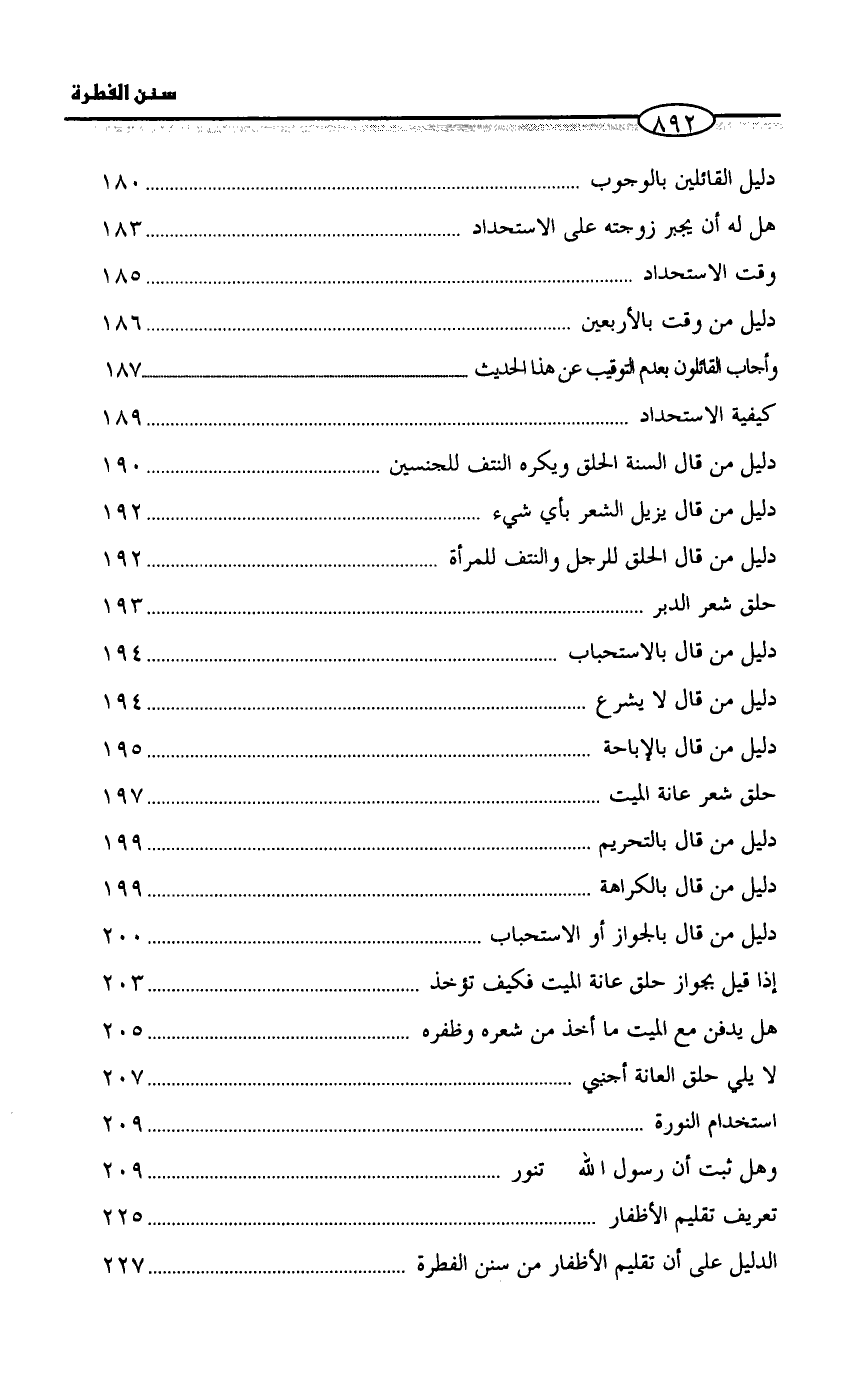 سنن الفطرة
٨٩٢
دليل القائلين بالوجوب ........ ١٨٠
هل له أن يجبر زوجته على الاستحداد ........ ١٨٣
وقت الاستحداد ........ ١٨٥
دليل من وقت بالأربعين ........ ١٨٦
وأجاب القائلون بعدم التوقيب عن هذا الحديث ........ ١٨٧
كيفية الاستحداد ........ ١٨٩
دليل من قال السنة الحلق ويكره النتف للجنسين ........ ١٩٠
دليل من قال يزيل الشعر بأي شيء ........ ١٩٢
دليل من قال الحلق للرجل والنتف للمرأة ........ ١٩٢
حلق شعر الدبر ........ ١٩٣
دليل من قال بالاستحباب ........ ١٩٤
دليل من قال لا يشرع ........ ١٩٤
دليل من قال بالإباحة ........ ١٩٥
حلق شعر عانة الميت ........ ١٩٧
دليل من قال بالتحريم ........ ١٩٩
دليل من قال بالكراهة ........ ١٩٩
دليل من قال بالجواز أو الاستحباب ........ ٢٠٠
إذا قيل بجواز حلق عانة الميت فكيف تؤخذ ........ ٢٠٣
هل يدفن مع الميت ما أخذ من شعره وظفره ........ ٢٠٥
لا يلي حلق العانة أجنبي ........ ٢٠٧
استخدام النورة ........ ٢٠٩
وهل ثبت أن رسول الله تنور ........ ٢٠٩
تعريف تقليم الأظفار ........ ٢٢٥
الدليل على أن تقليم الأظفار من سنن الفطرة ........ ٢٢٧